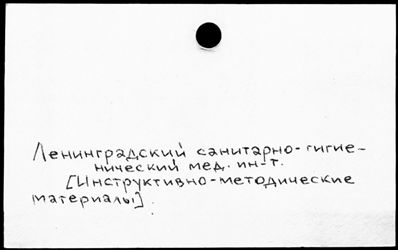 Ленинградский санитарно-гигие-
нический мед. ин-т.
[Инструктивно-методические
материалы].